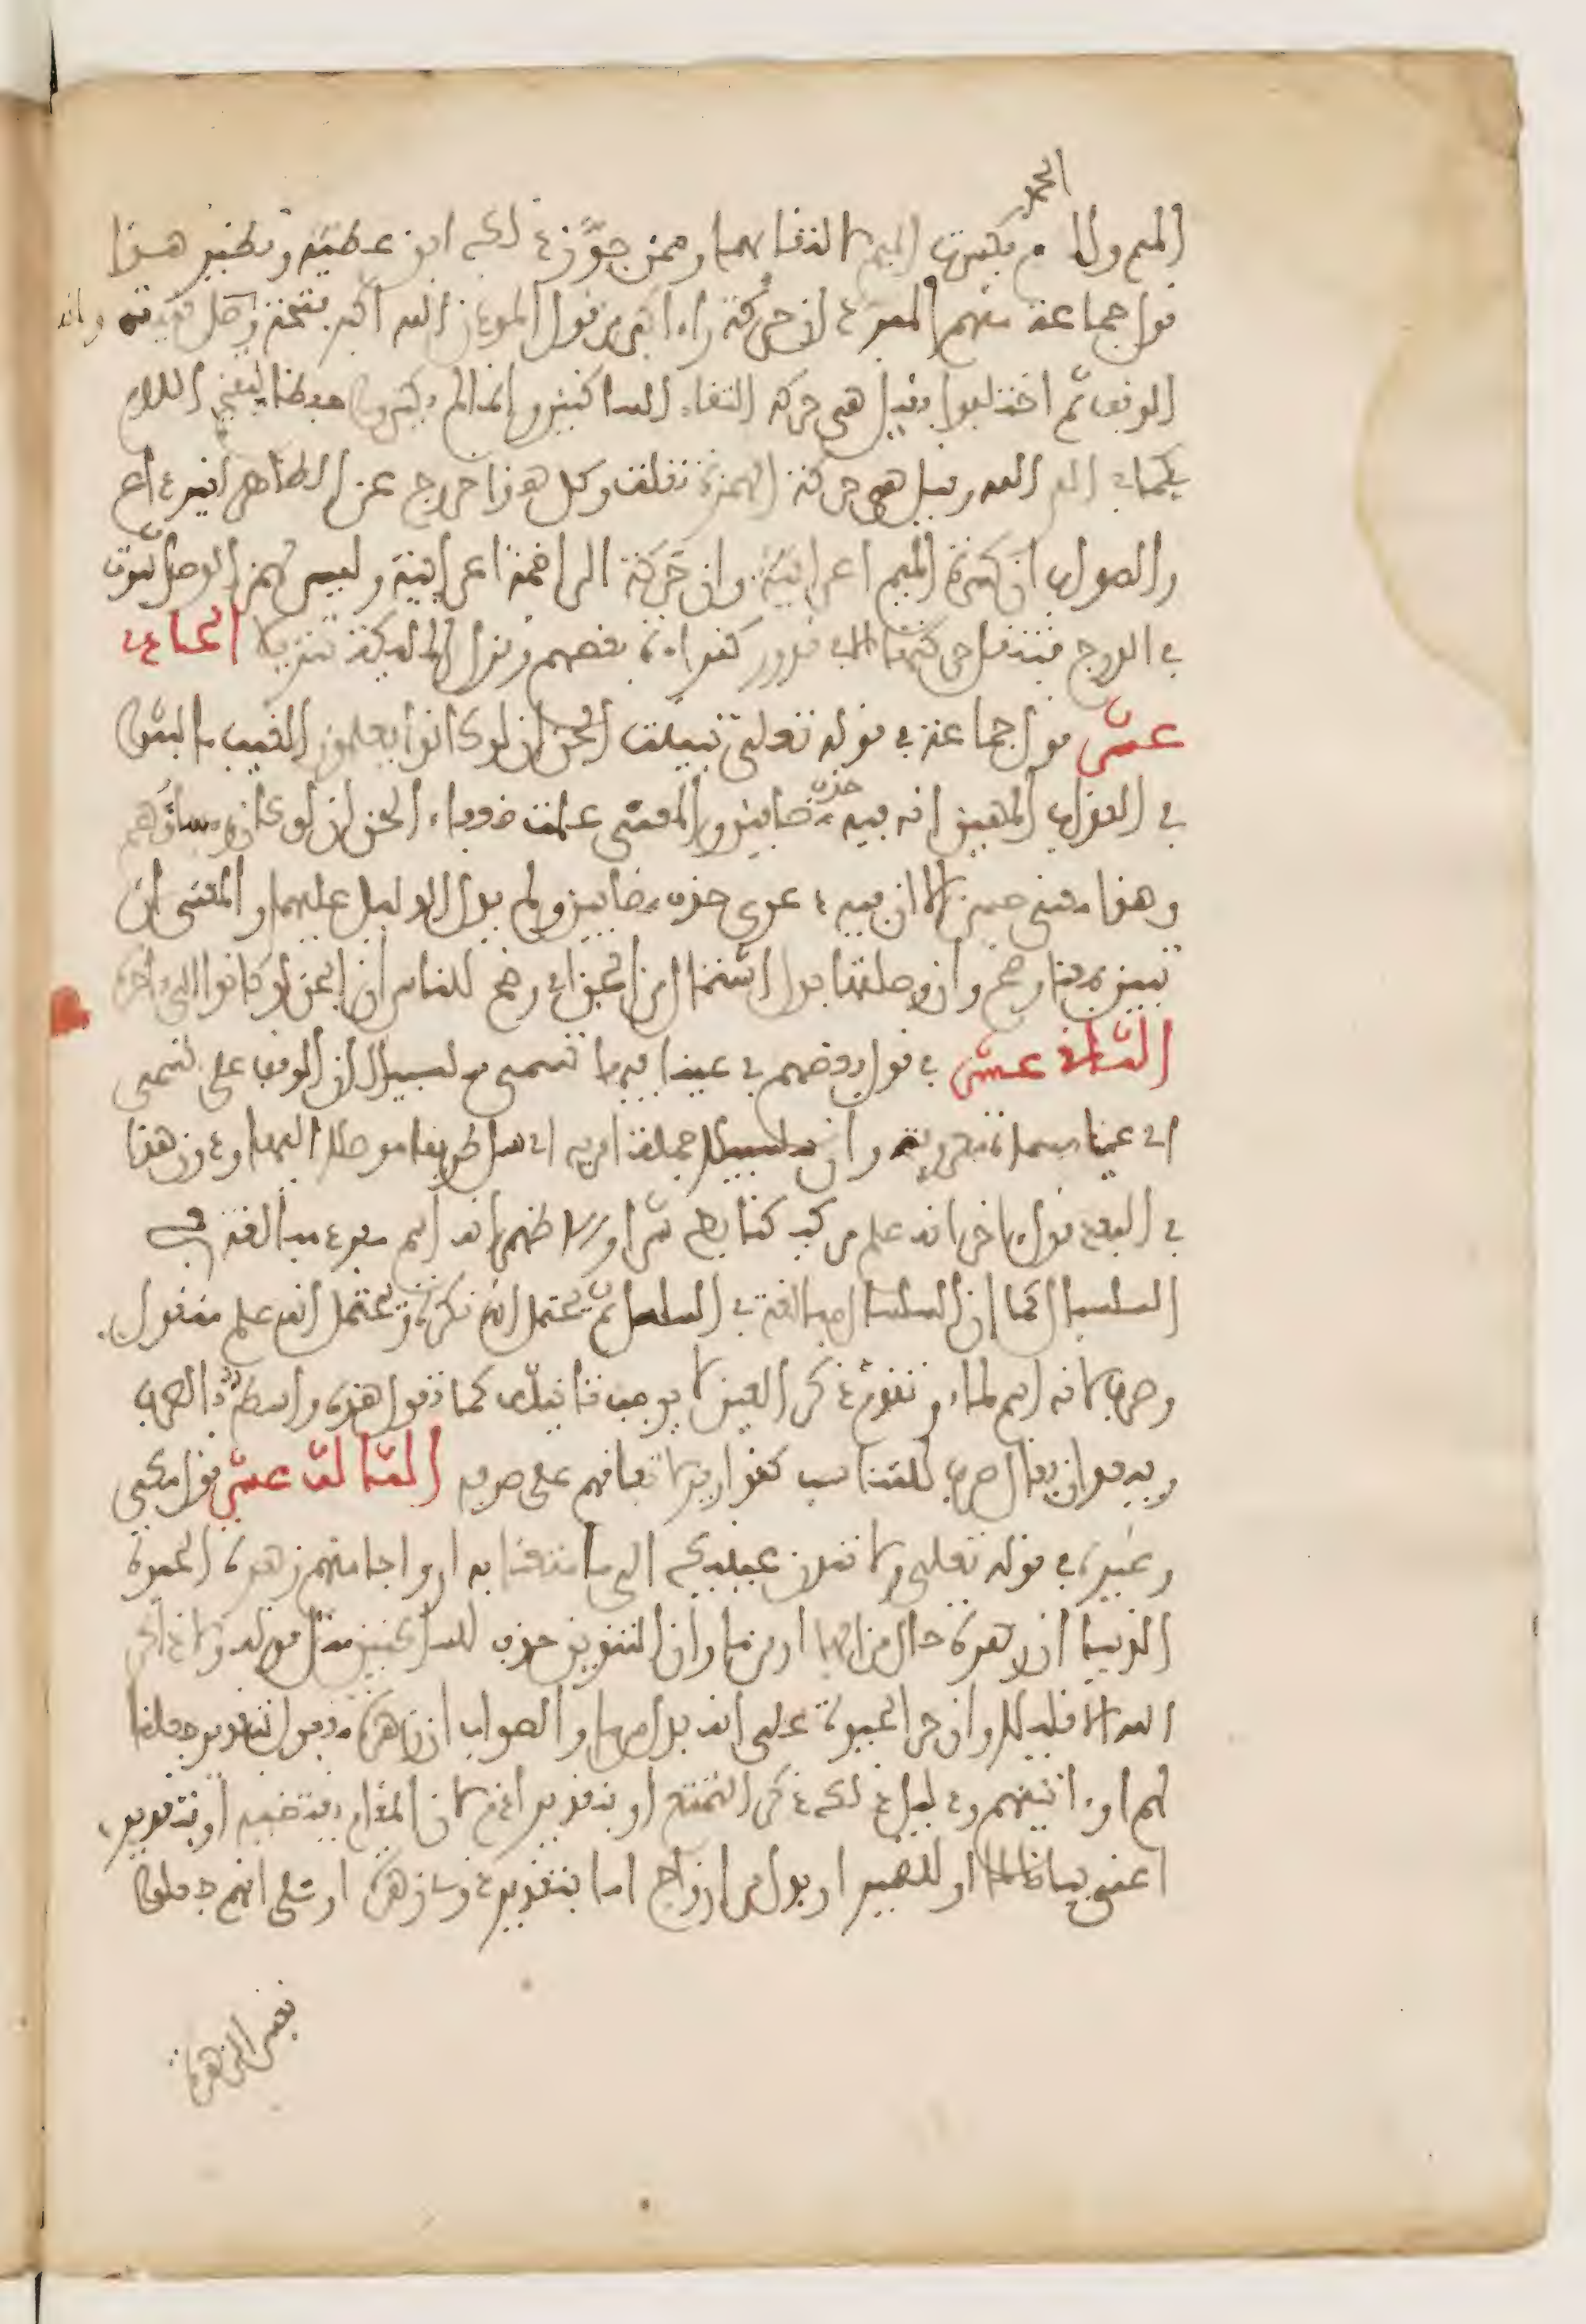 الحمد
الميم ولا م بكسرت الميم لالتقائهما وممن جوز ذلك ابن عطية ونظير هذا
قول جماعة منهم المبرد ان حركة راء اكبر من قول الموذن الله اكبر فتحة وصل بنية وانه
الوقف ثم اختلفوا فقيل هى حركة التقاء الساكنين وانما لم يكسروا حفظا لتفخيم اللام
كما في الم الله وقيل هي حركة الهمزة نقلت وكل هذا خروج عن الظاهر لغير داع
والصواب ان كسرة الميم اعرابية وان حركة الرا ضمة اعرابية وليس لهمز الوصل ثبوت
في الدرج فتنقل حركتها الا في ندور كقراءة بعضهم ونزل الملائكة تنزيلا الحادي
عشر قول جماعة في قوله تعلى تبينت الجن ان لو كانوا يعلمون الغيب ما لبثوا
في العذاب المهين انه فيه حذف مضافين والمعنى علمت ضعفاء الجن ان لو كان رءساؤهم
وهذا معنى حسن الا ان فيه دعوى حذف مضافين ولم يدل الدليل عليهما والمعنى ان
تبين بمعنى وضح وان وصلتها بدل اشتمال من الجن اي وضح للناس ان الجن لو كانوا الى اخره
الثانى عشر في قول بعضهم في عينا فيها تسمى سلسبيلا ان الوقف على تسمى
اي عينا مسماة معروفة وان سلسبيلا جملة امرية اي سل طريقا موصلة اليها ودون هذا
في البعد قول اخر انه علم مركب كتابط شرا والاظهر انه اسم مفرد مبالغة في
السلسال كما ان السلسال مبالغة في السلس ثم يحتمل انه نكرة ويحتمل انه علم منقول
وصرف لانه اسم لماء وتقدم ذكر العين لا يوجب تانيثه كما تقول هذه واسط بالصرف
ويبعد ان يقال صرف للتناسب كقواريرا لاتفاقهم على صرفه الثالث عشر قول مكي
وغيره في قوله تعلى ولا تمدن عينيك الى ما متعنا به ازواجا منهم زهرة الحيوة
الدنيا ان زهرة حال من الهاء او من ما وان التنوين حذف للساكنين مثل قوله ولا ذاكر
الله الا قليلا وان جر الحيوة على انه بدل من ما والصواب ان زهرة مفعول بتقدير جعلنا
لهم او ءاتيناهم ودليل ذلك ذكر التمتيع او بتقدير اذم لان المقام يقتضيه او بتقدير
اعني بيانا لما او للضمير او بدل من ازواج اما بتقدير ذوي زهرة او على انهم جعلوا
نفس الزهرة